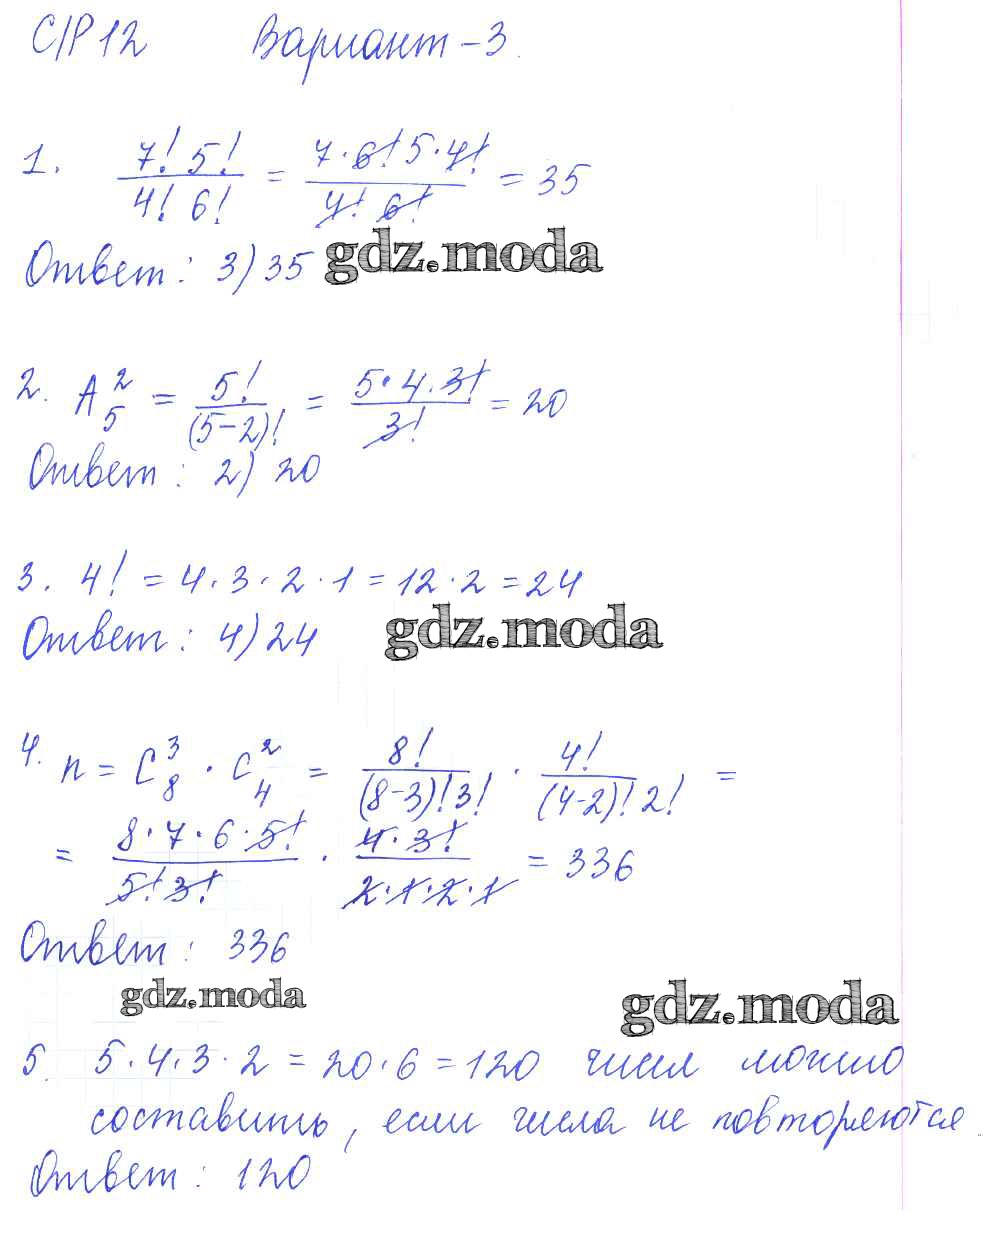 С/Р 12 Вариант - 3.
1. 7! 5! / 4! 6! = 7 · 6! 5 · 4! / 4! 6! = 35
Ответ: 3) 35
gdz.moda
2. A₅² = 5! / (5-2)! = 5 · 4 · 3! / 3! = 20
Ответ: 2) 20
3. 4! = 4 · 3 · 2 · 1 = 12 · 2 = 24
Ответ: 4) 24
gdz.moda
4. n = C₈³ · C₄² = 8! / (8-3)! 3! · 4! / (4-2)! 2! =
= 8 · 7 · 6 · 5! / 5! 3! · 4 · 3! / 2 · 1 · 2 · 1 = 336
Ответ: 336
gdz.moda
gdz.moda
5. 5 · 4 · 3 · 2 = 20 · 6 = 120 чисел можно
составить, если числа не повторяются.
Ответ: 120